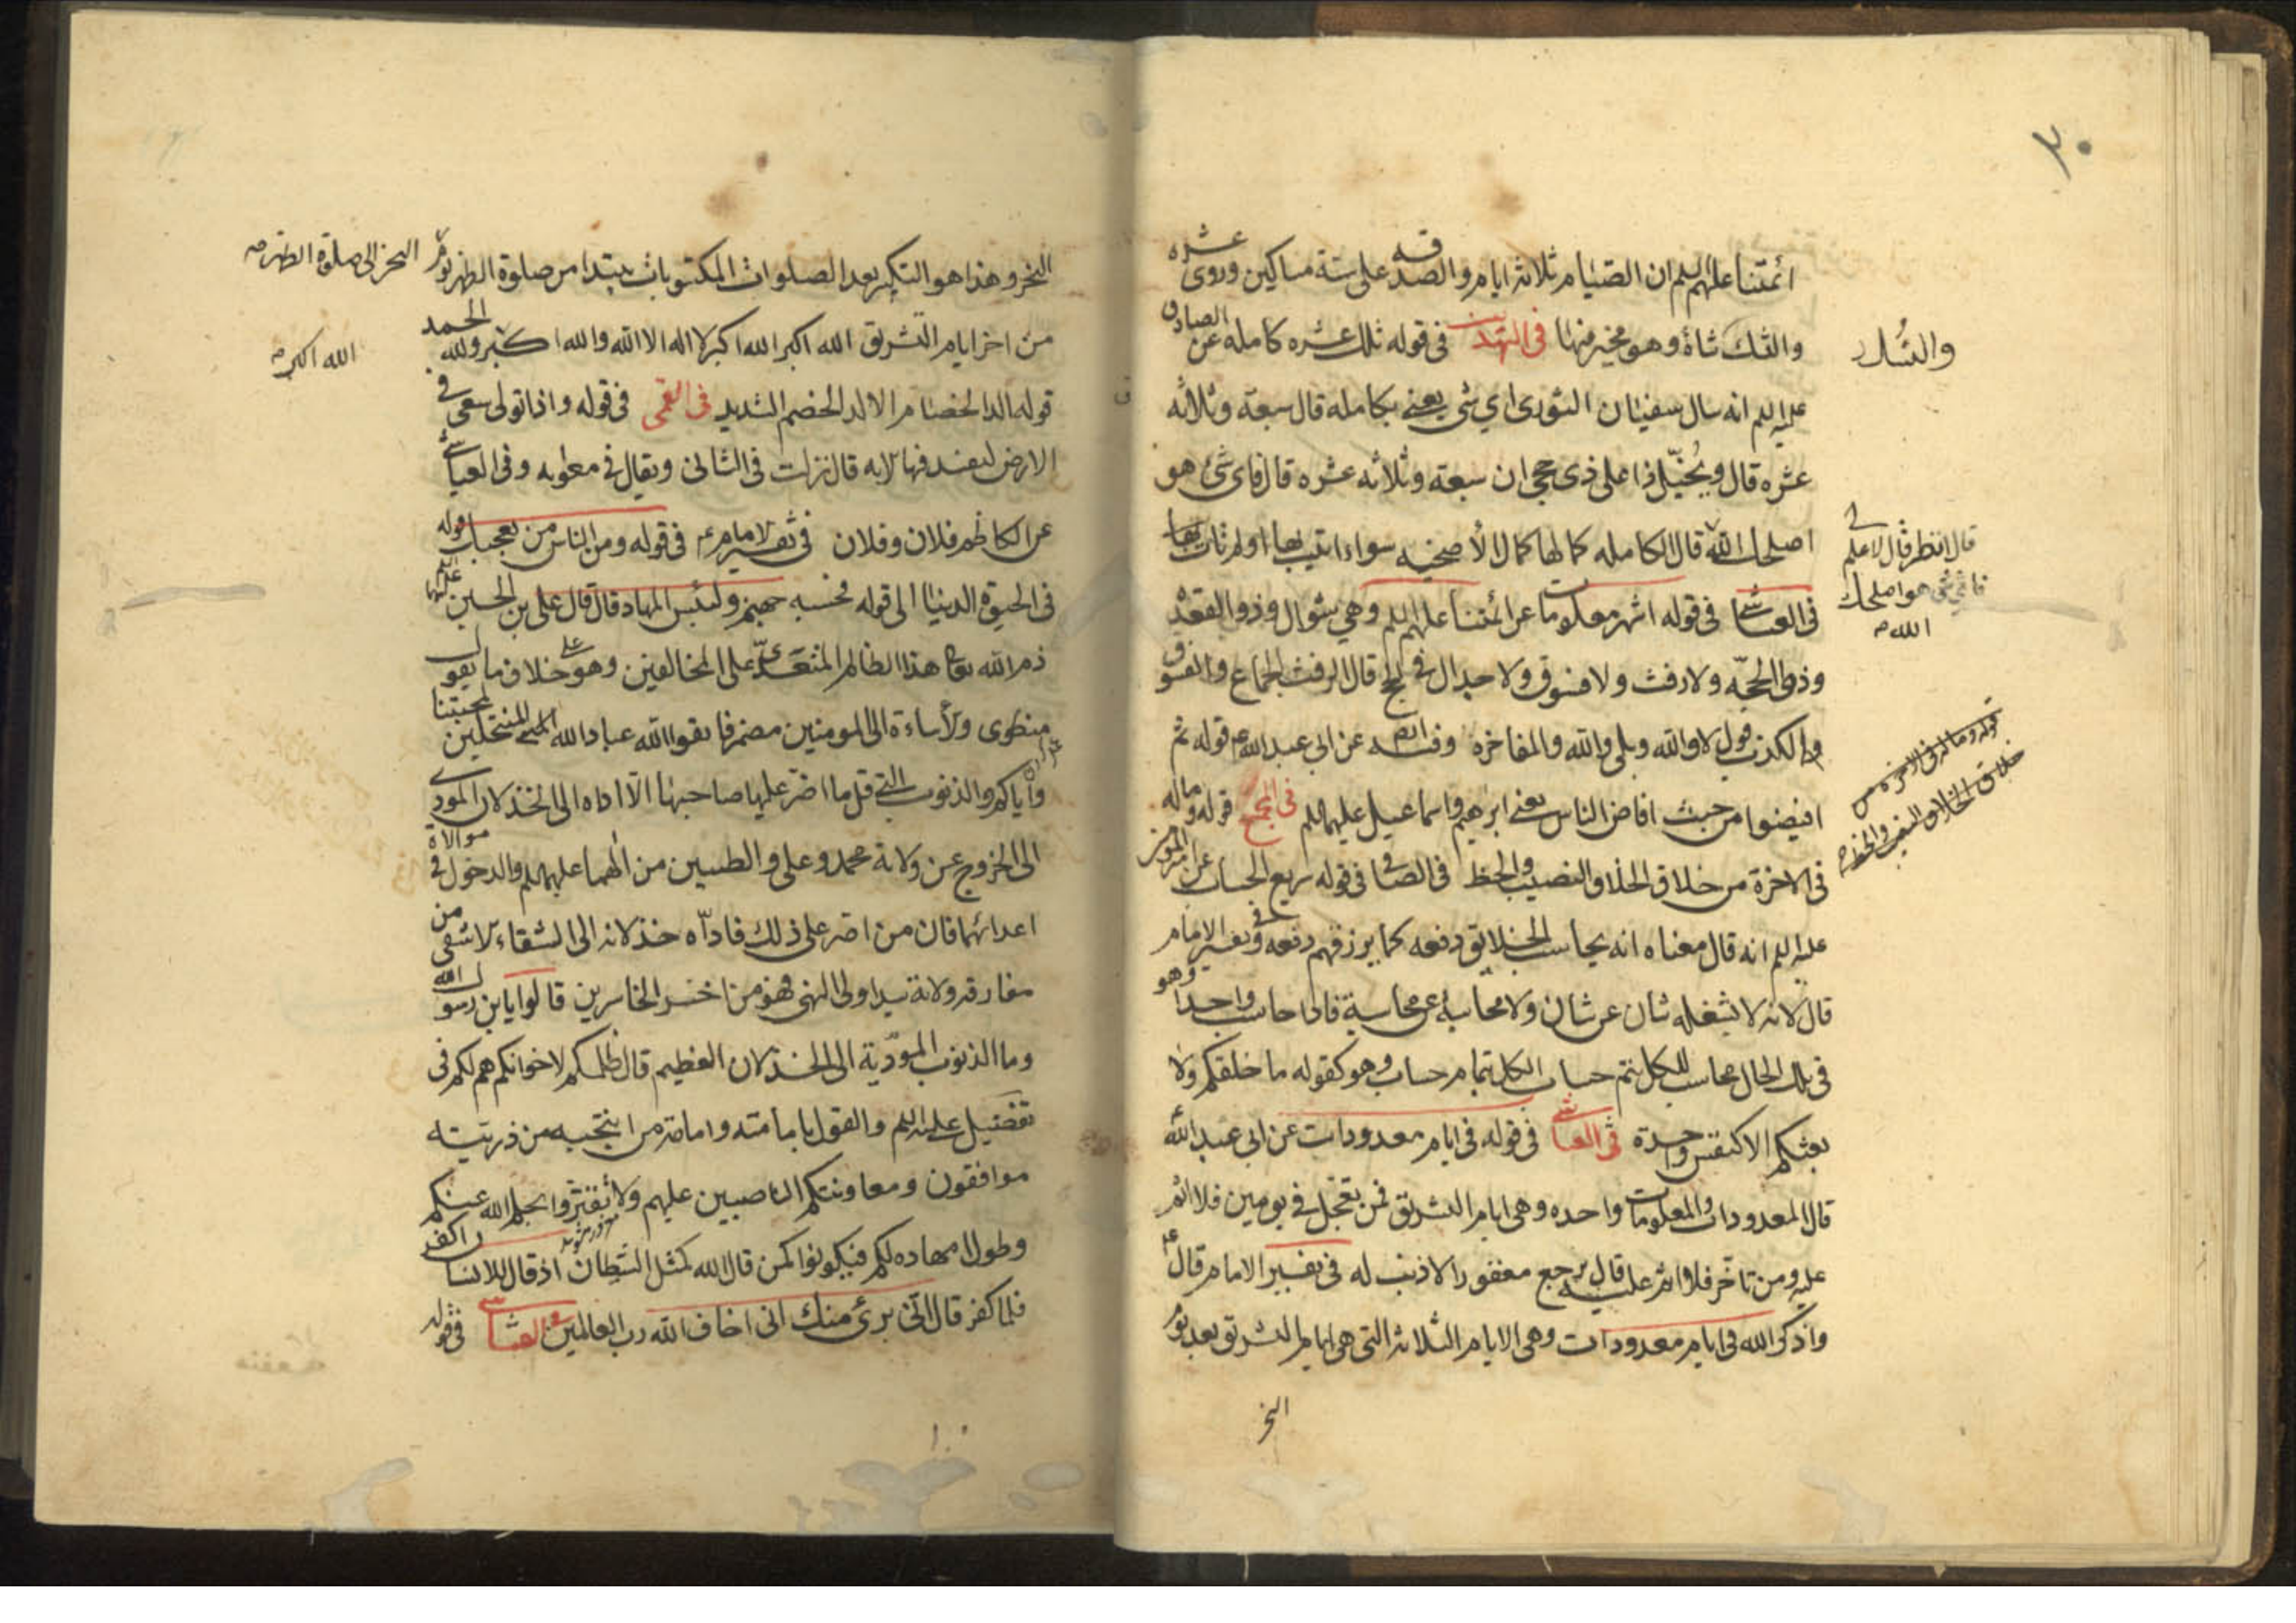 ٢٠
ائمتنا عليهم السلم ان الصيام ثلاثة ايام والصدقه على ستة مساكين وروى عشره
والنسك شاة وهو مخير فيها فى التهذيب فى قوله تلك عشره كامله عن الصادق
عليه السلم انه سال سفيان الثورى اي شئ يعنى بكامله قال سبعة وثلاثه
عشره قال ويختل ذا على ذى حجى ان سبعة وثلاثه عشره قال فاى شئ هو
اصلحك الله قال الكامله كمالها كمال الأضحيه سواء اتيت بها اولم تات بها
فى العياشى فى قوله اشهر معلومات عن ائمتنا عليهم السلم وهي شوال وذو القعده
وذو الحجه ولا رفث ولا فسوق ولا جدال فى الحج قال الرفث الجماع والفسوق
الكذب قول لا والله وبلى والله والمفاخرة وفيه ايضا عن ابى عبد الله ع قوله ثم
افيضوا من حيث افاض الناس يعنى ابرهيم واسماعيل عليهما السلم فى المجمع قوله وماله
فى الاخرة من خلاق الخلاق النصيب والحظ فى الصافى فى قوله سريع الحساب عن امير المؤمنين
عليه السلم انه قال معناه انه يحاسب الخلايق دفعه كما يرزقهم دفعه وفى تفسير الامام
قال لانه لا يشغله شان عن شان ولا محاسبة عن محاسبة فاذا حاسب واحدا وهو
فى تلك الحال محاسب للكل يتم حساب الكل بتمام حساب وهو كقوله ما خلقكم ولا
بعثكم الا كنفس واحدة فى العياشى فى قوله فى ايام معدودات عن ابى عبد الله
قال المعدودات والمعلومات واحده وهى ايام التشريق فمن تعجل فى يومين فلا اثم
عليه ومن تاخر فلا اثم عليه قال يرجع مغفورا لا ذنب له فى تفسير الامام قال ع
واذكروا الله فى ايام معدودات وهى الايام الثلاثة التى هى ايام التشريق بعد يوم
النحر
والنسك
قال انظر قال لا علم لى
فاي شئ هو اصلحك
الله
قوله وماله فى الاخرة من
خلاق الخلاق النصيب والحظ
النحر وهذا هو التكبير بعد الصلوات المكتوبات يبتدا من صلوة الظهر يوم
من اخر ايام التشريق الله اكبر الله اكبر لا اله الا الله والله اكبر ولله الحمد
قوله الد الخصام الالد الخصم الشديد فى القمى فى قوله واذا تولى سعى فى
الارض ليفسد فيها الايه قال نزلت فى الثانى ويقال فى معويه وفى العياشى
عن الكاظم فلان وفلان فى تفسير الامام ع فى قوله ومن الناس من يعجبك قوله
فى الحيوة الدنيا الى قوله فحسبه جهنم ولبئس المهاد قال قال على بن الحسين عليهما السلم
ذم الله تعالى هذا الظالم المتعدى على المخالفين وهو على خلاف ما يقول
منطوى ولأساءة الى المومنين مضمر فاتقوا الله عباد الله المنتحلين لمحبتنا
واياكم والذنوب التى قل ما اصر عليها صاحبها الا اداه الى الخذلان المودى
الى الخروج عن ولاية محمد وعلى والطيبين من الهما عليهم السلم والدخول فى موالاة
اعدائهما فان من اصر على ذلك فاداه خذلانه الى الشقاء الاشقى من
مفارقه ولاية سيد اولى النهى فهو من اخسر الخاسرين قالوا يابن رسول الله
وما الذنوب المودية الى الخذلان العظيم قال ظلمكم لاخوانكم هم لكم فى
تفضيل على عليه السلم والقول بامامته وامامة من انتجبه من ذريته
موافقون ومعاونتكم الناصبين عليهم ولا تغتروا بحلم الله عنكم
وطول امهاده لكم فتكونوا كمن قال الله كمثل الشيطان اذ قال للانسان اكفر
فلما كفر قال انى برئ منك انى اخاف الله رب العالمين فى العياشى فى قوله
النحر الى صلوة الظهر
الله اكبر